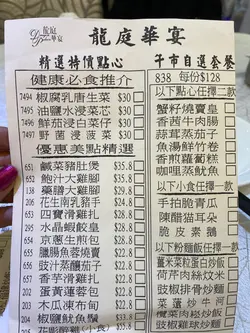 龍庭華宴
龍庭華宴
精選特價點心
健康必食推介
7494 椒腐乳唐生菜 $30
7495 油鹽水浸菜芯 $30
7496 鮮茄浸白菜仔 $30
7497 野菌浸菠菜 $30
優惠美點精選
651 鹹菜豬肚煲 $35.8
652 鮑汁大雞腳 $35.8
138 藥膳大雞腳 $35.8
206 花生南乳豬手 $28.8
653 四寶滑雞扎 $28.8
295 水晶蝦餃皇 $28.8
604 京蔥生煎包 $28.8
655 臘腸蓉蘿蔔糕 $28.8
656 豉汁蒸釀茄子 $28.8
657 香芋滑雞扎 $28.8
202 蛋黃蓮蓉包 $28.8
203 木瓜凍布甸 $28.8
662 椒鹽魷魚鬚 $28.8
午市自選套餐
838 每份$128
以下點心任擇二款
蟹籽燒賣皇
香茜牛肉腸
蒜茸蒸茄子
魚湯鮮竹卷
香煎蘿蔔糕
咖哩蒸魷魚
以下小食任擇一款
手拍脆青瓜
陳醋猫耳朵
脆皮素鵝
以下粉麵飯任擇一款
薑米菜粒蛋白炒飯
荷芹肉絲炆米
豉椒排骨炒麵
菜薳炒牛河